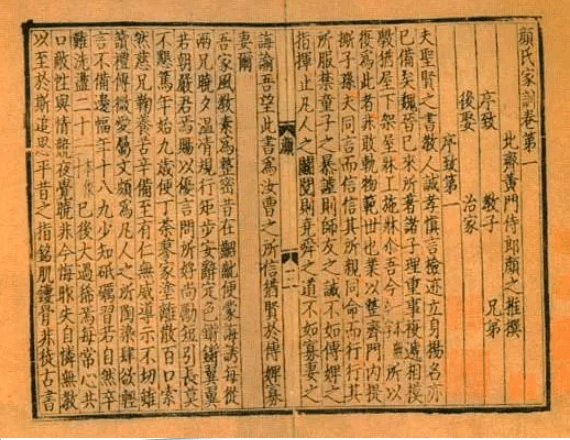 顔氏家訓卷第一
北齊黄門侍郎顔之推撰
序致 教子 兄弟
後娶 治家
序致第一
夫聖賢之書教人誠孝慎言檢迹立身揚名亦
已備矣魏晉已來所著諸子理重事複遞相模
斆猶屋下架屋牀上施牀爾吾今所
復為此者非敢軌物範世也業以整齊門内提
撕子孫夫同言而信信其所親同命而行行其
所服禁童子之暴謔則師友之誡不如傅婢之
指揮止凡人之鬭鬩則堯舜之道不如寡妻之
誨諭吾望此書為汝曹之所信猶賢於傅婢寡
妻爾
吾家風教素為整密昔在齠齔便蒙誨誘每從
兩兄曉夕温凊規行矩步安辭定色鏘鏘翼翼
若朝嚴君焉賜以優言問所好尚勵短引長莫
不懇篤年始九歲便丁荼蓼家塗離散百口索
然慈兄鞠養苦辛備至有仁無威導示不切雖
讀禮傳微愛屬文頗為凡人之所陶染肆欲輕
言不備邊幅年十八九少知砥礪習若自然卒
難洗盪二十已後大過稀焉每常心共
口敵性與情競夜覺曉非今悔昨失自憐無教
以至於斯追思平昔之指銘肌鏤骨非徒古書